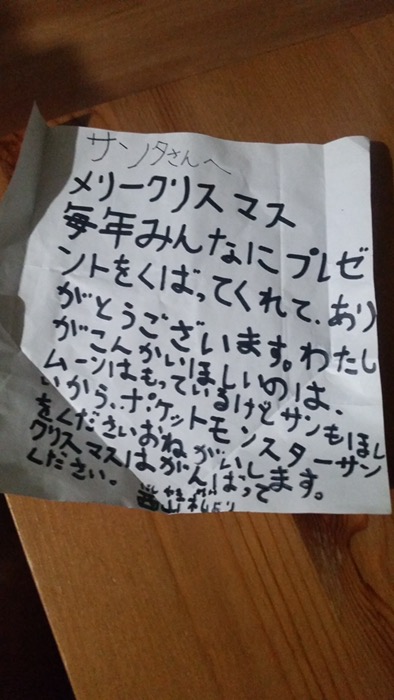 サンタさんへ
メリークリスマス
毎年みんなにプレゼ
ントをくばってくれて、あり
がとうございます。わたし
がこんかいほしいのは、
ムーンはもっているけどサンもほし
いから、ポケットモンスターサン
をくださいおねがいします。
クリスマスはがんばって
ください。